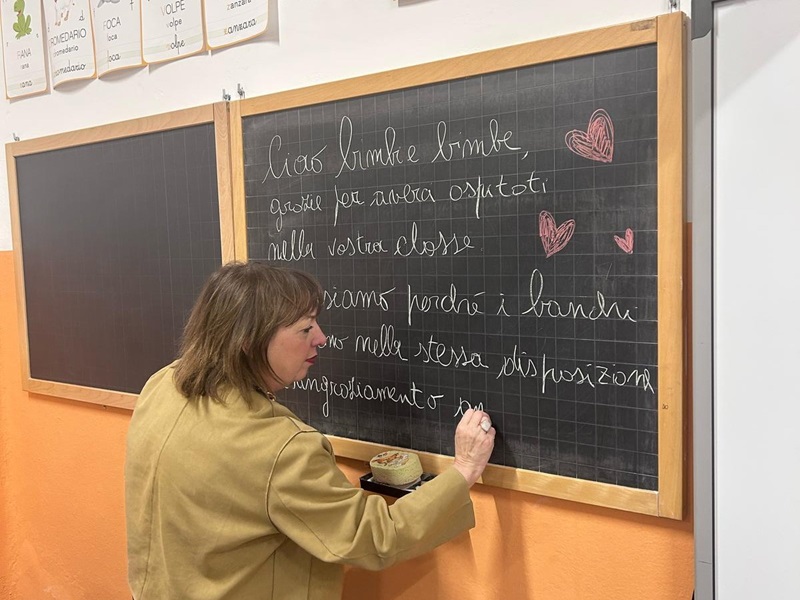 RANA
rana
rana
DROMEDARIO
dromedario
dromedario
FOCA
foca
foca
VOLPE
volpe
volpe
zanzara
zanzara
Ciao bimbi e bimbe,
grazie per averci ospitati
nella vostra classe.
siamo perché i banchi
no nella stessa disposizione
ringraziamento